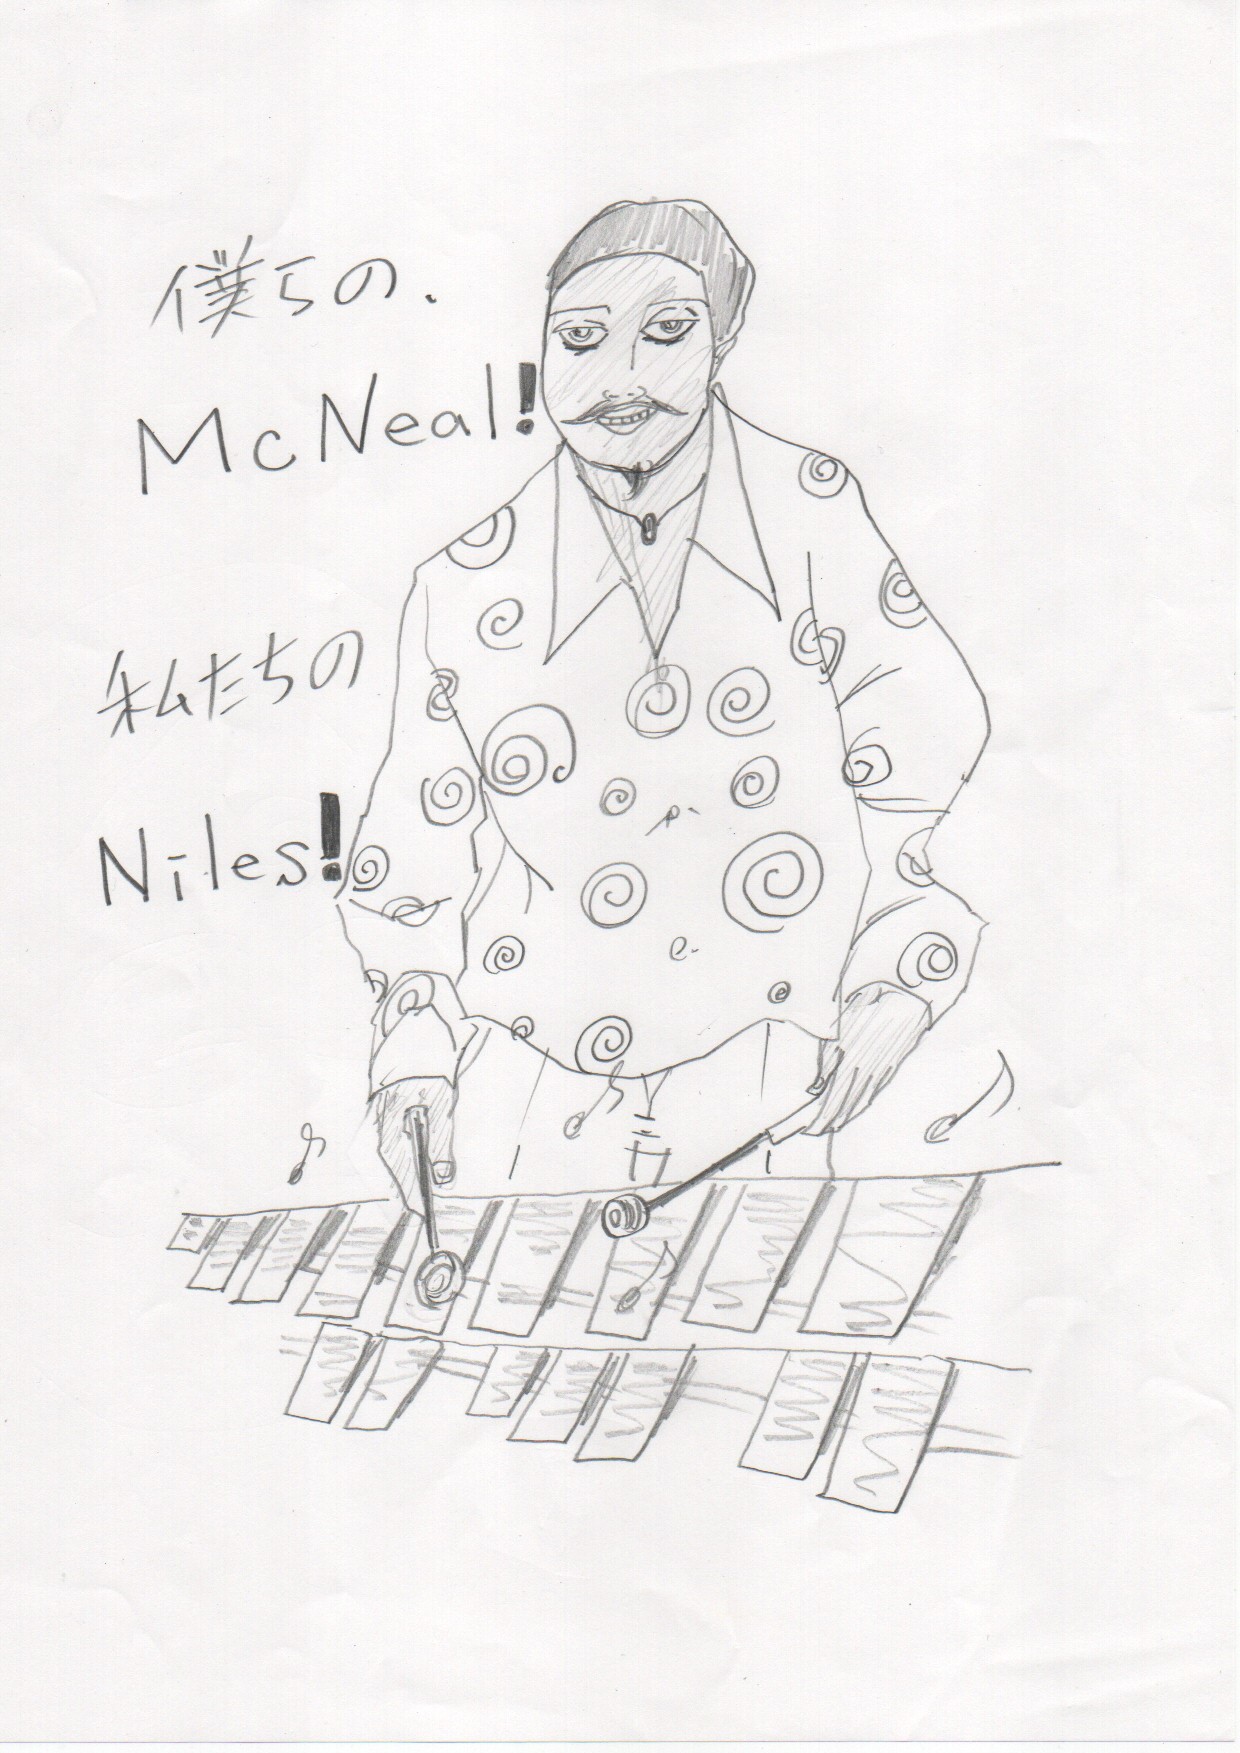 僕らの.
McNeal!
私たちの
Niles!